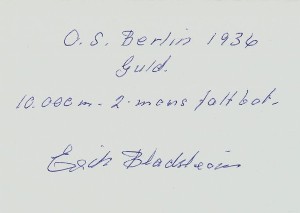 O.S. Berlin 1936
Guld.
10.000 m - 2-mans faltbot.
Erik Bladström